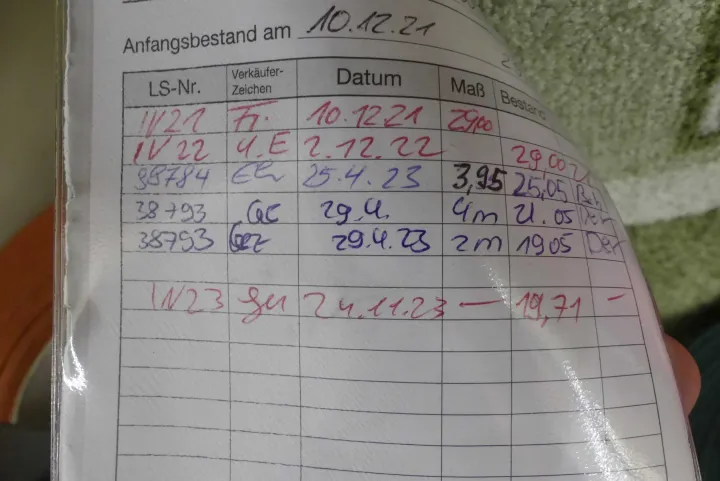 Anfangsbestand am 10.12.21
LS-Nr. Verkäufer-Zeichen Datum Maß Bestand
IV21 Fr. 10.12.21 29,00
IV22 4.E 2.12.22 29,00
38784 25.4.23 3,95 25,05
38793 GE 29.4. 4m 21.05 Der
38793 29.4.23 2m 1905 Der
IV23 24.11.23 — 19,71 –